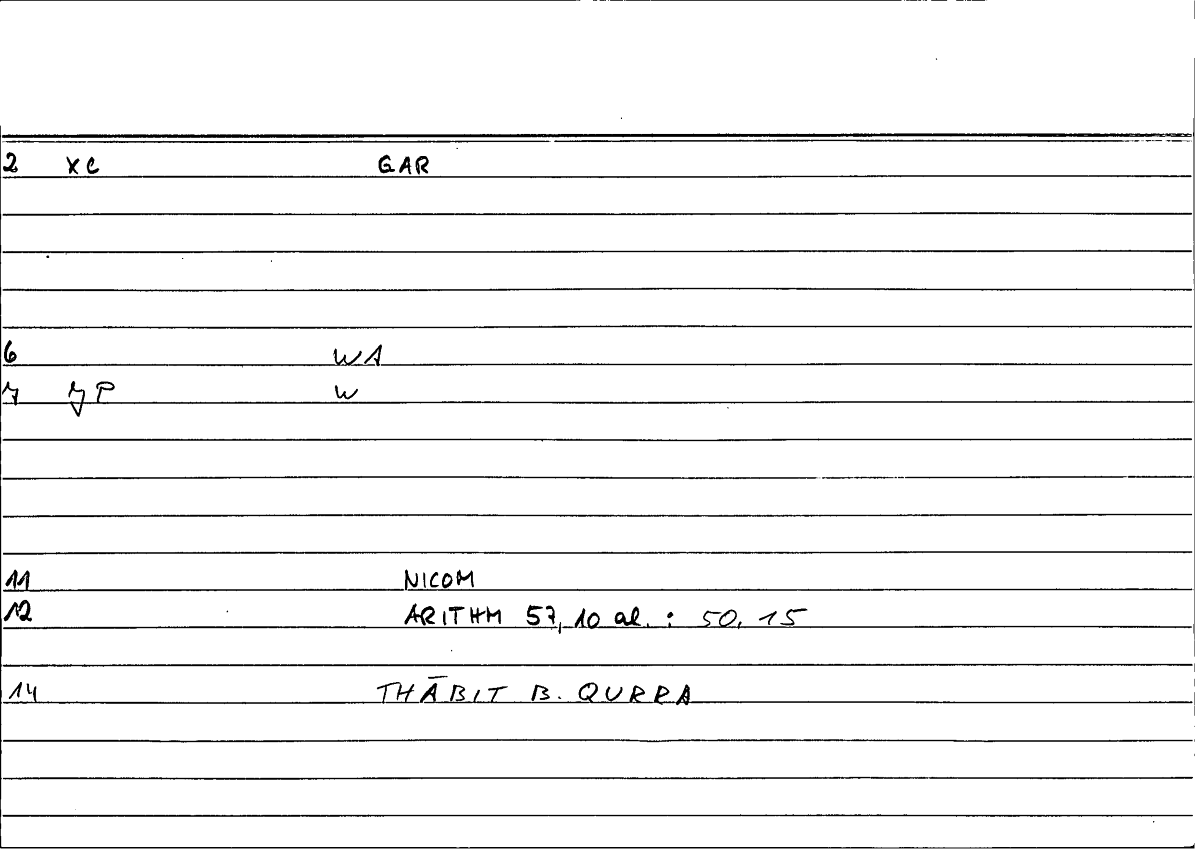 2 XC GAR
6 WA
7 P W
11 NICOM
12 ARITHM 57,10 al. : 50, 15
14 THĀBIT B. QURRA